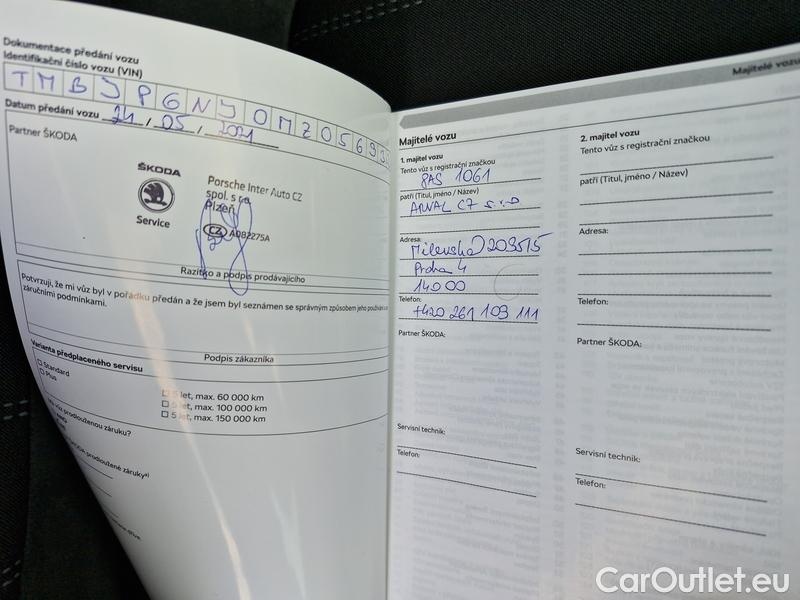 Dokumentace předání vozu
Identifikační číslo vozu (VIN)
TMBJPGNYOMZ05693
Datum předání vozu 21 / 05 / 2021
Partner ŠKODA
ŠKODA
Service
Porsche Inter Auto CZ
spol. s r.o.
Plzeň
CZ A082275A
Razítko a podpis prodávajícího
Potvrzuji, že mi vůz byl v pořádku předán a že jsem byl seznámen se správným způsobem jeho používání
záručními podmínkami.
Podpis zákazníka
Varianta předplaceného servisu
Standard
Plus
5 let, max. 60 000 km
5 let, max. 100 000 km
5 let, max. 150 000 km
vůz prodlouženou záruku?
prodloužené záruky
Majitelé vozu
Majitelé vozu
1. majitel vozu
Tento vůz s registrační značkou
8AS 1061
patří (Titul, jméno / Název)
ARVAL CZ s.r.o
Adresa:
Milevská 2095/5
Praha 4
140 00
Telefon:
+420 261 109 111
Partner ŠKODA:
Servisní technik:
Telefon:
2. majitel vozu
Tento vůz s registrační značkou
patří (Titul, jméno / Název)
Adresa:
Telefon:
Partner ŠKODA:
Servisní technik:
Telefon:
CarOutlet.eu